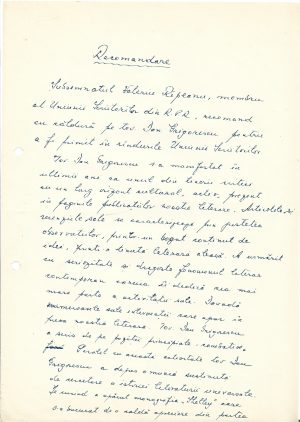 Recomandare
Subsemnatul Valeriu Râpeanu, membru
al Uniunii Scriitorilor din R.P.R. recomand
cu căldură pe tov. Ion Grigorescu pentru
a fi primit în rîndurile Uniunii Scriitorilor.
Tov. Ion Grigorescu s-a manifestat în
ultimii ani ca unul din tinerii critici
cu un larg orizont cultural, activ, prezent
în paginile publicațiilor noastre literare. Articolele, re-
cenziile, sale se caracterizează prin
observațiilor, printr-un bogat conținut de
idei, printr-o ținută literară aleasă. A urmărit
cu seriozitate și dragoste fenomenul literar
contemporan căruia îi dedică cea mai
mare parte a activității sale. Dovadă
numeroasele sale intervenții care apar în
presa noastră literară. Tov. Ion Grigorescu
a scris de pe poziții principiale,
Paralel cu această activitate tov. Ion
Grigorescu a depus o muncă susținută
de cercetare a istoriei literaturii universale.
I-a apărut monografia "Shelley" care
s-a bucurat de o caldă apreciere din partea